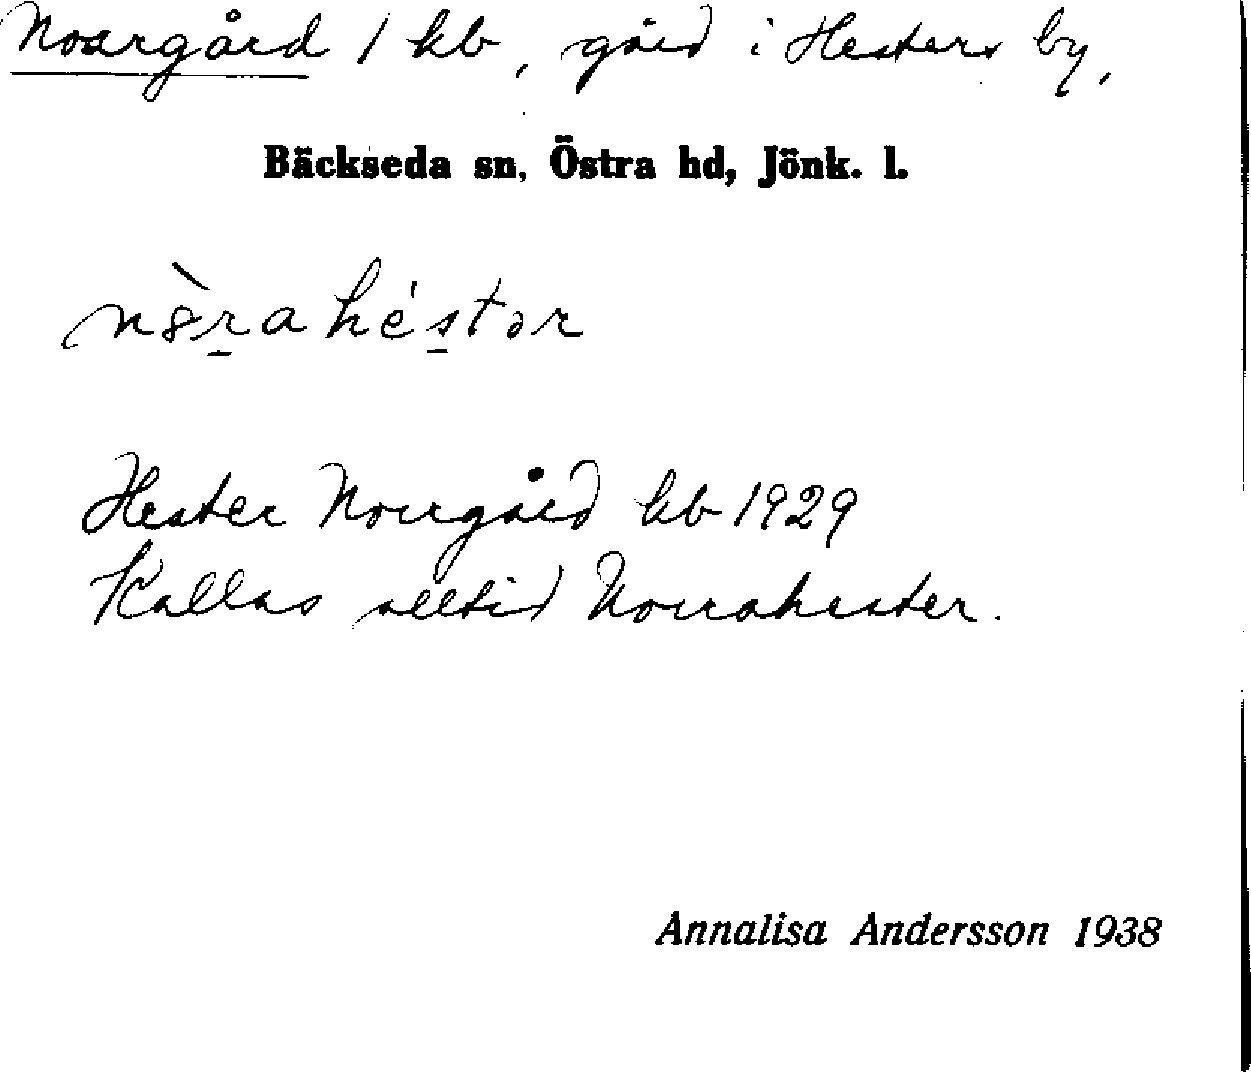 Norrgård / kb, gård i Hesters by,
Bäckseda sn, Östra hd, Jönk. l.
nòrahéstər
Hester Norrgård kb 1929
Kallas alltid Norrahester.
Annalisa Andersson 1938